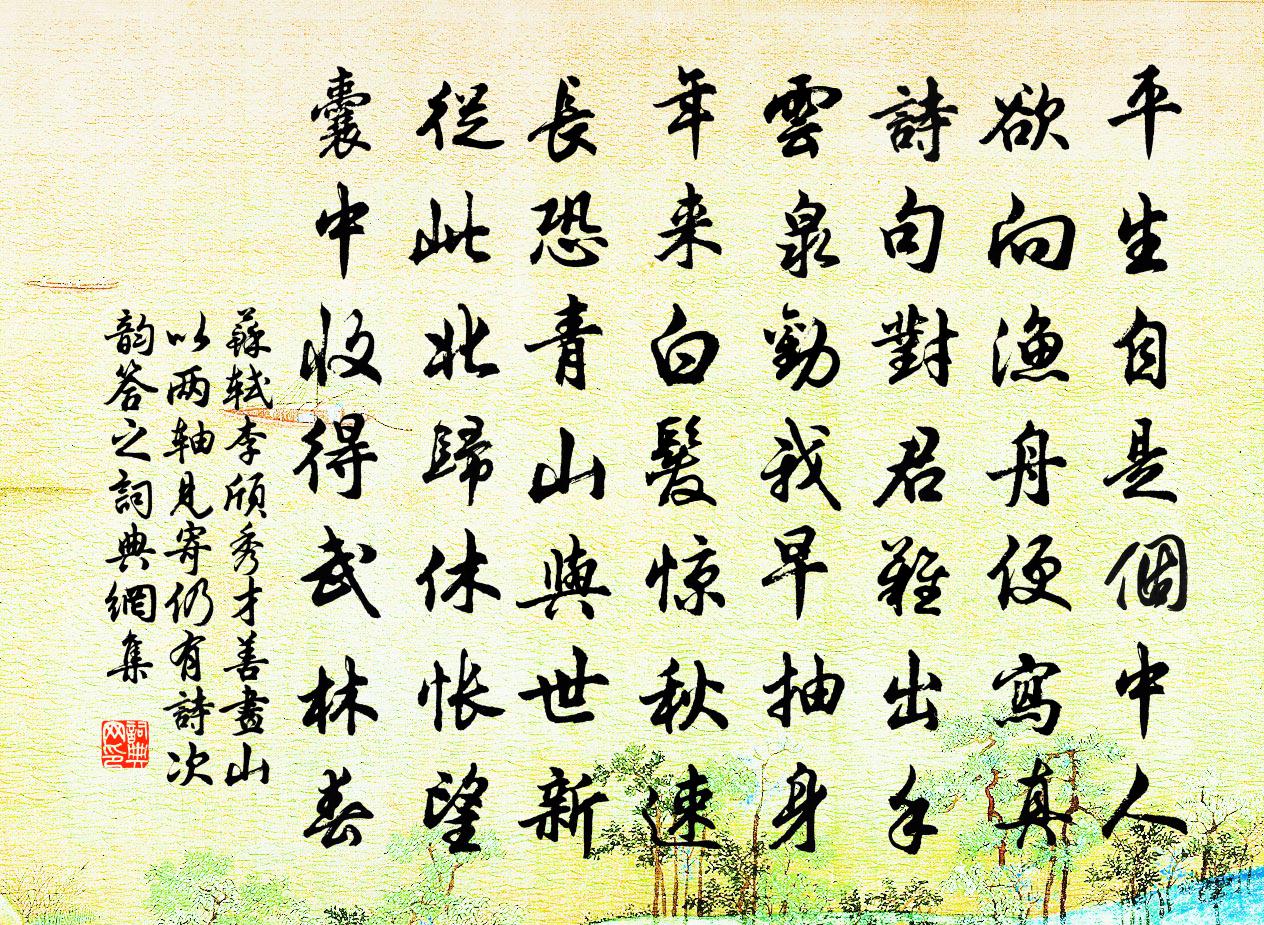 平生自是個中人
欲向漁舟便寫真
詩句對君難出手
雲泉勸我早抽身
年来白髮惊秋速
長恐青山與世新
從此北歸休悵望
囊中收得武林春
蘇軾李頎秀才善畫山
以两軸見寄仍有詩次
韵答之詞典網集
詞典
网印